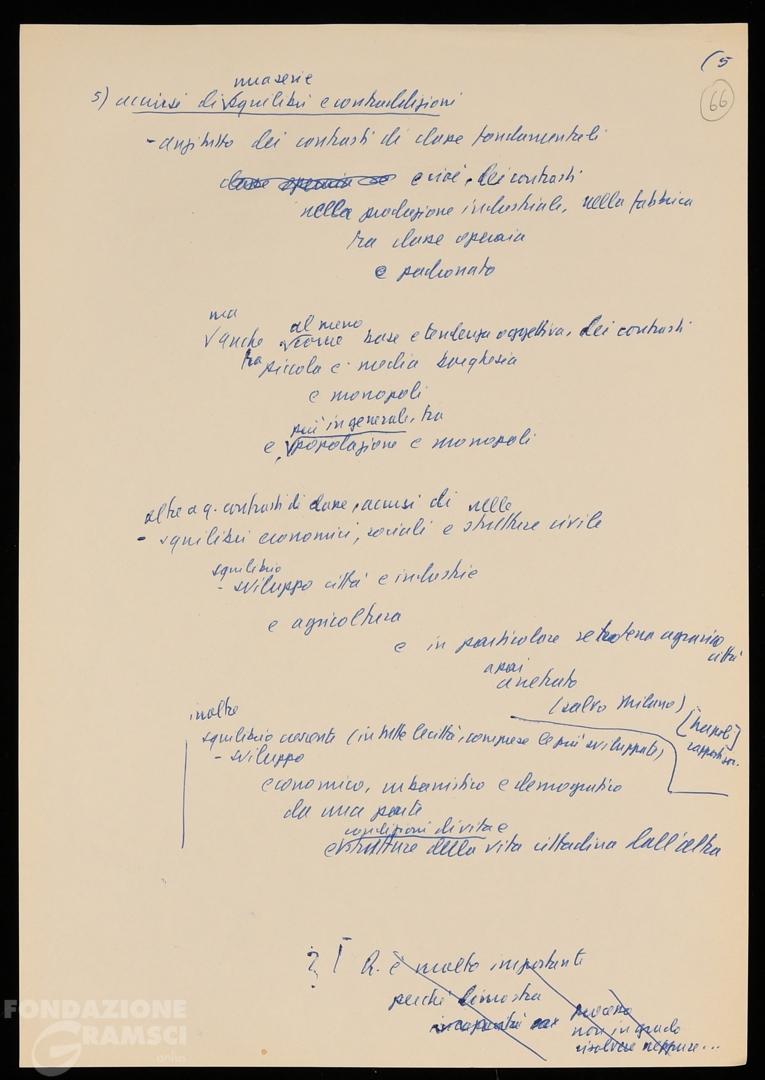 (5
66
una serie
5) acuirsi di squilibri e contraddizioni
- anzitutto dei contrasti di classe fondamentali
classe operaia e cioè, dei contrasti
nella produzione industriale, nella fabbrica
tra classe operaia
e padronato
ma
al meno
anche come base e tendenza oggettiva, dei contrasti
tra piccola e media borghesia
e monopoli
più in generale, tra
e, popolazione e monopoli
oltre a q. contrasti di classe, acuirsi di nelle
- squilibri economici, sociali e strutture civile
squilibrio
- sviluppo città e industrie
e agricoltura
e in particolare retroterra agrario
città
assai
arretrato
(salvo Milano)
[Napoli]
rapporti
inoltre
squilibrio crescente (in tutte le città, comprese le più sviluppate)
- sviluppo
economico, urbanistico e demografico
da una parte
condizioni di vita e
e strutture della vita cittadina dall'altra
? R. è molto importante
perché dimostra
incapacità
processo
non in grado
risolvere neppure...
FONDAZIONE
GRAMSCI
onlus